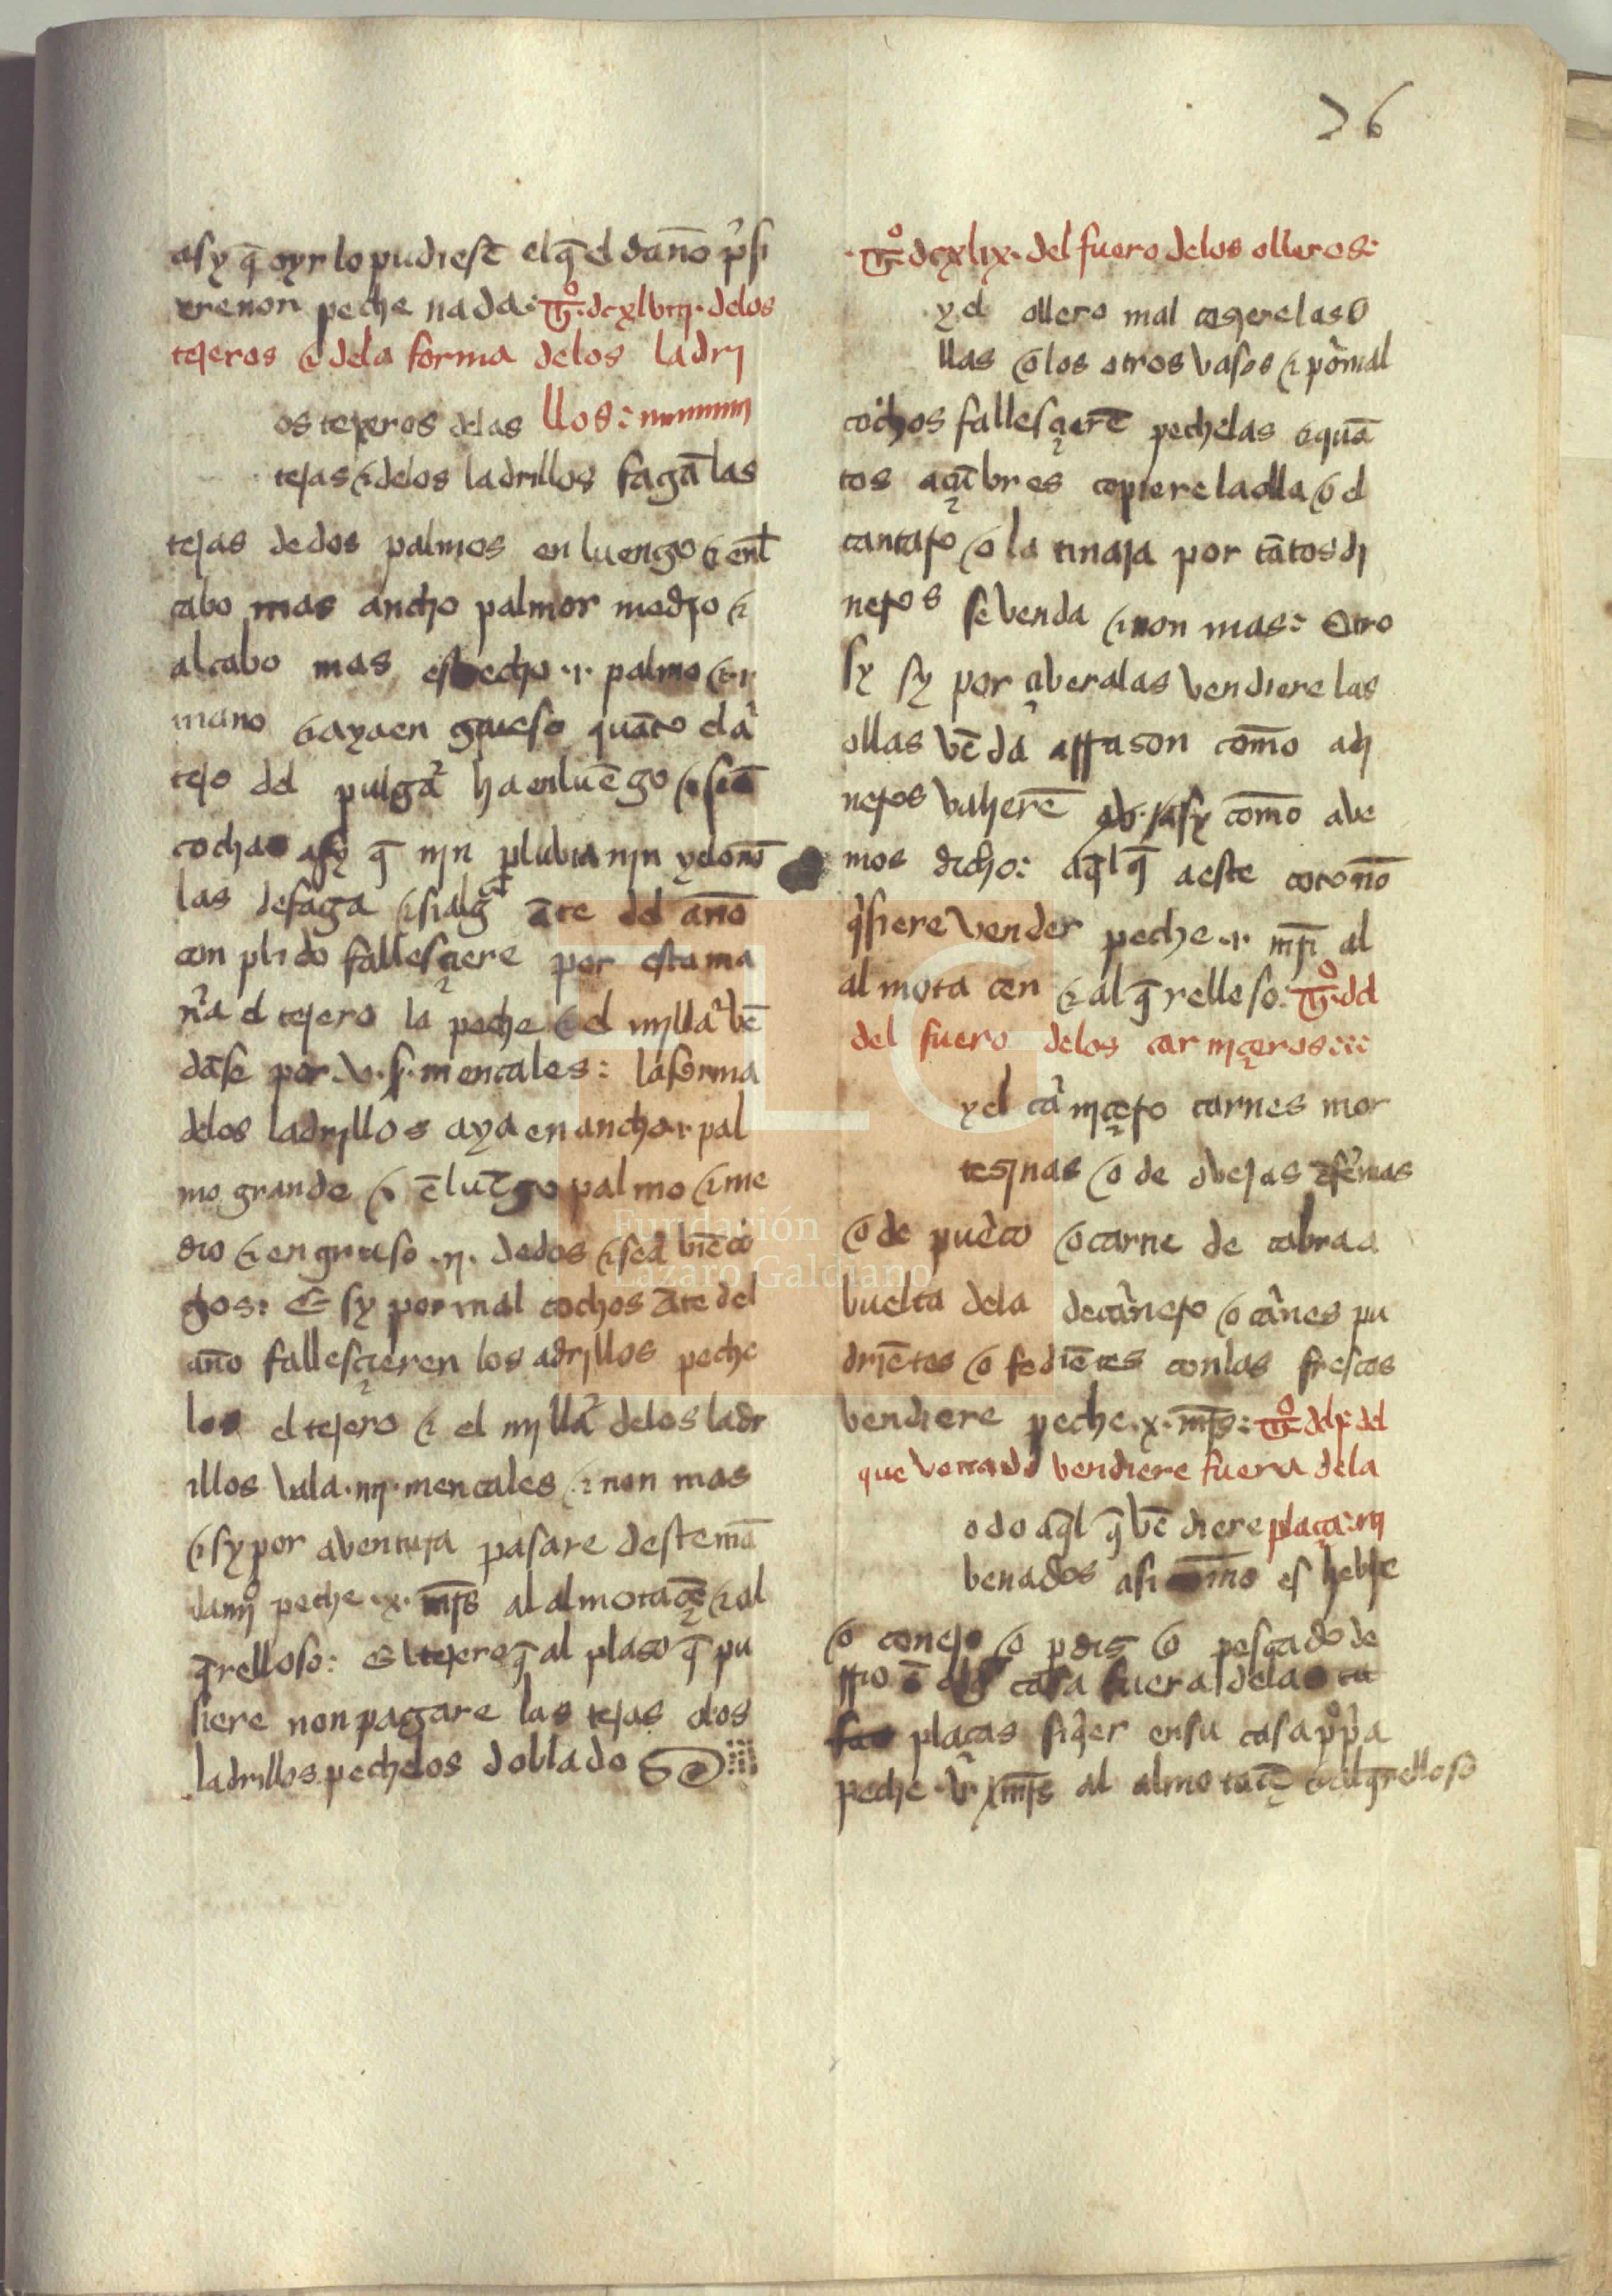 76
asy q̄ oyr lo pudiesē el q̄ el dan̄o p̃si
ere non peche nada: T̊. dcxlviij. delos
tejeros & dela forma delos ladri
llos:
os tejeros delas
tejas & delos ladrillos fagā las
tejas de dos palmos en luengo & enl
cabo mas ancho palmo & medio &
al cabo mas estrecho .i. palmo & .i.
mano & aya en grueso quāto el ar
tejo del pulgar̃ ha enluēgo & seā
cochas asy q̄ nin pluuia nin yelo nō
las desfaga & si alg̃ āte del an̄o
conplido fallesçiere por esta ma
ñra el tejero la peche & el millar̃ vē
dāse por .v. s. mencales: la forma
delos ladrillos aya en ancho .i. pal
mo grande & ē luēgo palmo & me
dio & en grueso .ij. dedos & seā biē co
chos: E sy por mal cochos āte del
an̄o fallesçieren los adrillos peche
los el tejero & el millar̃ delos ladr
illos vala .iij. mencales & non mas
& sy por aventura pasare deste mā
damj̊ peche .x. mr̄s al almotaçē & al
q̄relloso: El tejero q̄ al plaso q̄ pu
siere non pagare las tejas o los
ladrillos pechelos doblado
T̊ dcxlix. del fuero delos olleros:
y el ollero mal coxiere las o
llas o los otros vasos & por mal
cochos fallesçierē pechelas & quā
tos açūbres copiere la olla o el
cantaro o la tinaja por tātos di
neros se venda & non mas: Otro
sy sy por aberalas vendiere las
ollas vēda a rrason com̄o a di
neros valierē asy com̄o ave
mos dicho: aq̄l q̄ a este coto nō
q̃siere vender peche .i. mr̄i al
almotaçen & al q̄relloso: T̊. dcl
del fuero delos carniçeros:
y el car̃niçero carnes mor
tesinas o de ovejas ēfermas
o de puerco o carne de cabra a
buelta dela de car̃nero o car̃nes pu
driētes o fediētes con las frescas
vendiere peche .x. mr̄s: T̊ dclj. del
que venado vendiere fuera dela
plaça:
odo aq̄l q̄ vē diere
benados asi com̄o es liebre
o conejo o perdis o pescado de
rrio ē alg̃ casa fuera delas
plaças siq̃er en su casa p̊pia
peche .v. mr̄s al almotaçē & al q̄relloso
Fundación
Lázaro Galdiano